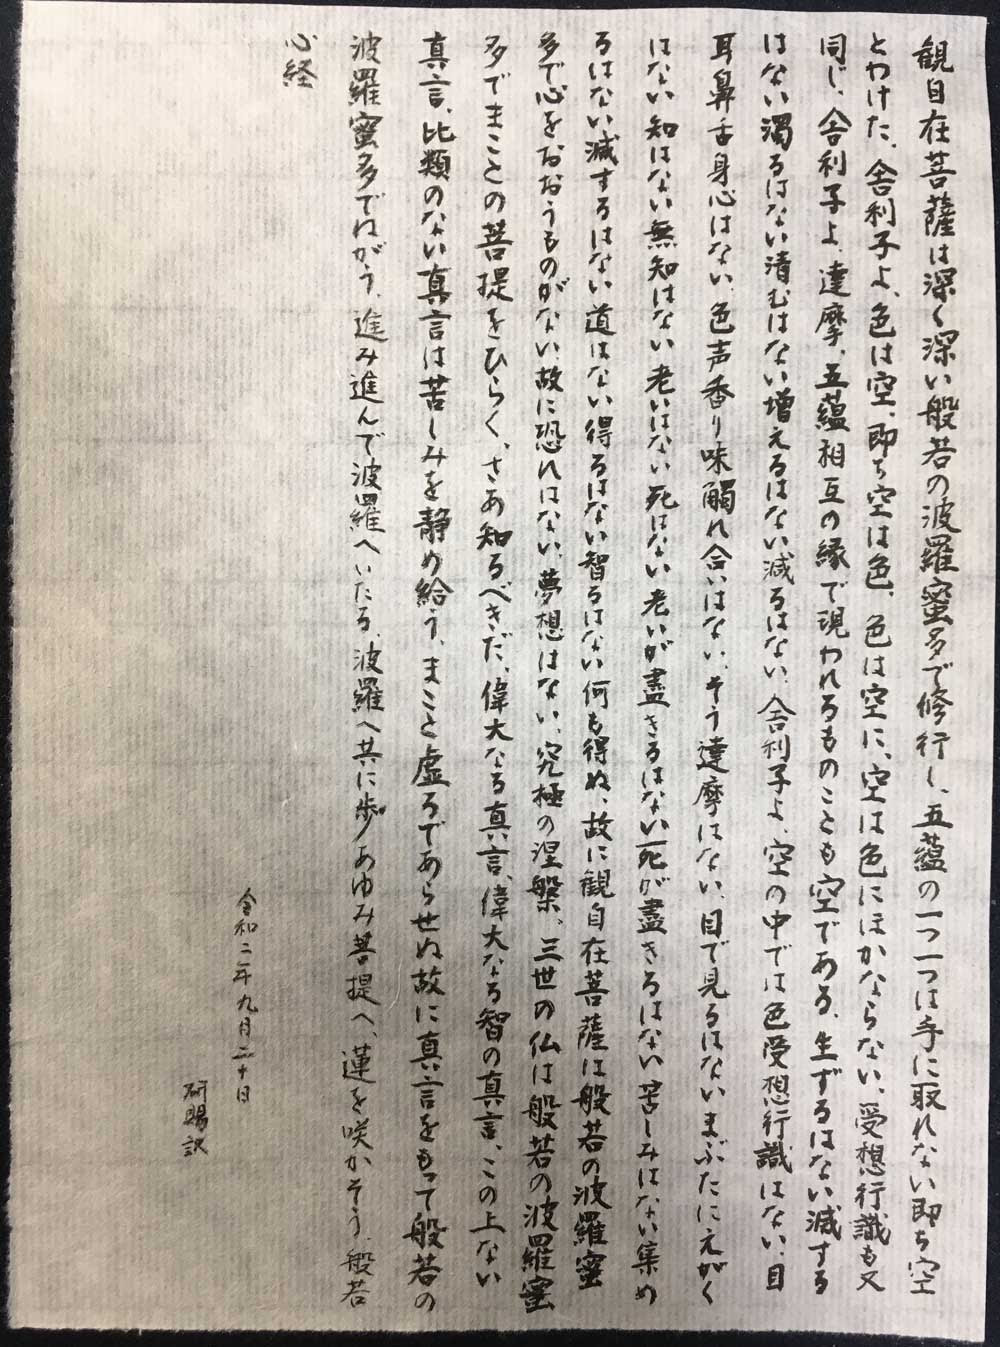 観自在菩薩は深く深い般若の波羅蜜多で修行し、五蘊の一つ一つは手に取れない即ち空
とわけた、舎利子よ、色は空、即ち空は色、色は空に、空は色にほかならない、受想行識も又
同じ、舎利子よ、達摩、五蘊相互の縁で現われるものことも空である、生ずるはない滅する
はない濁るはない清むはない増えるはない減るはない、舎利子よ、空の中では色受想行識はない、目
耳鼻舌身心はない、色声香り味触れ合いはない、そう達摩はない、目で見るはないまぶたにえがく
はない知はない無知はない老いはない死はない老いが盡きるはない死が盡きるはない苦しみはない集め
るはない滅するはない道はない得るはない智るはない何も得ぬ、故に観自在菩薩は般若の波羅蜜
多で心をおおうものがない、故に恐れはない、夢想はない、究極の涅槃、三世の仏は般若の波羅蜜
多でまことの菩提をひらく、さあ知るべきだ、偉大なる真言、偉大なる智の真言、この上ない
真言、比類のない真言は苦しみを静め給う、まこと虚ろであらせぬ故に真言をもって般若の
波羅蜜多でねがう、進み進んで波羅へいたる、波羅へ共に歩あゆみ菩提へ、蓮を咲かそう、般若
心経
令和二年九月二十日
研賜訳